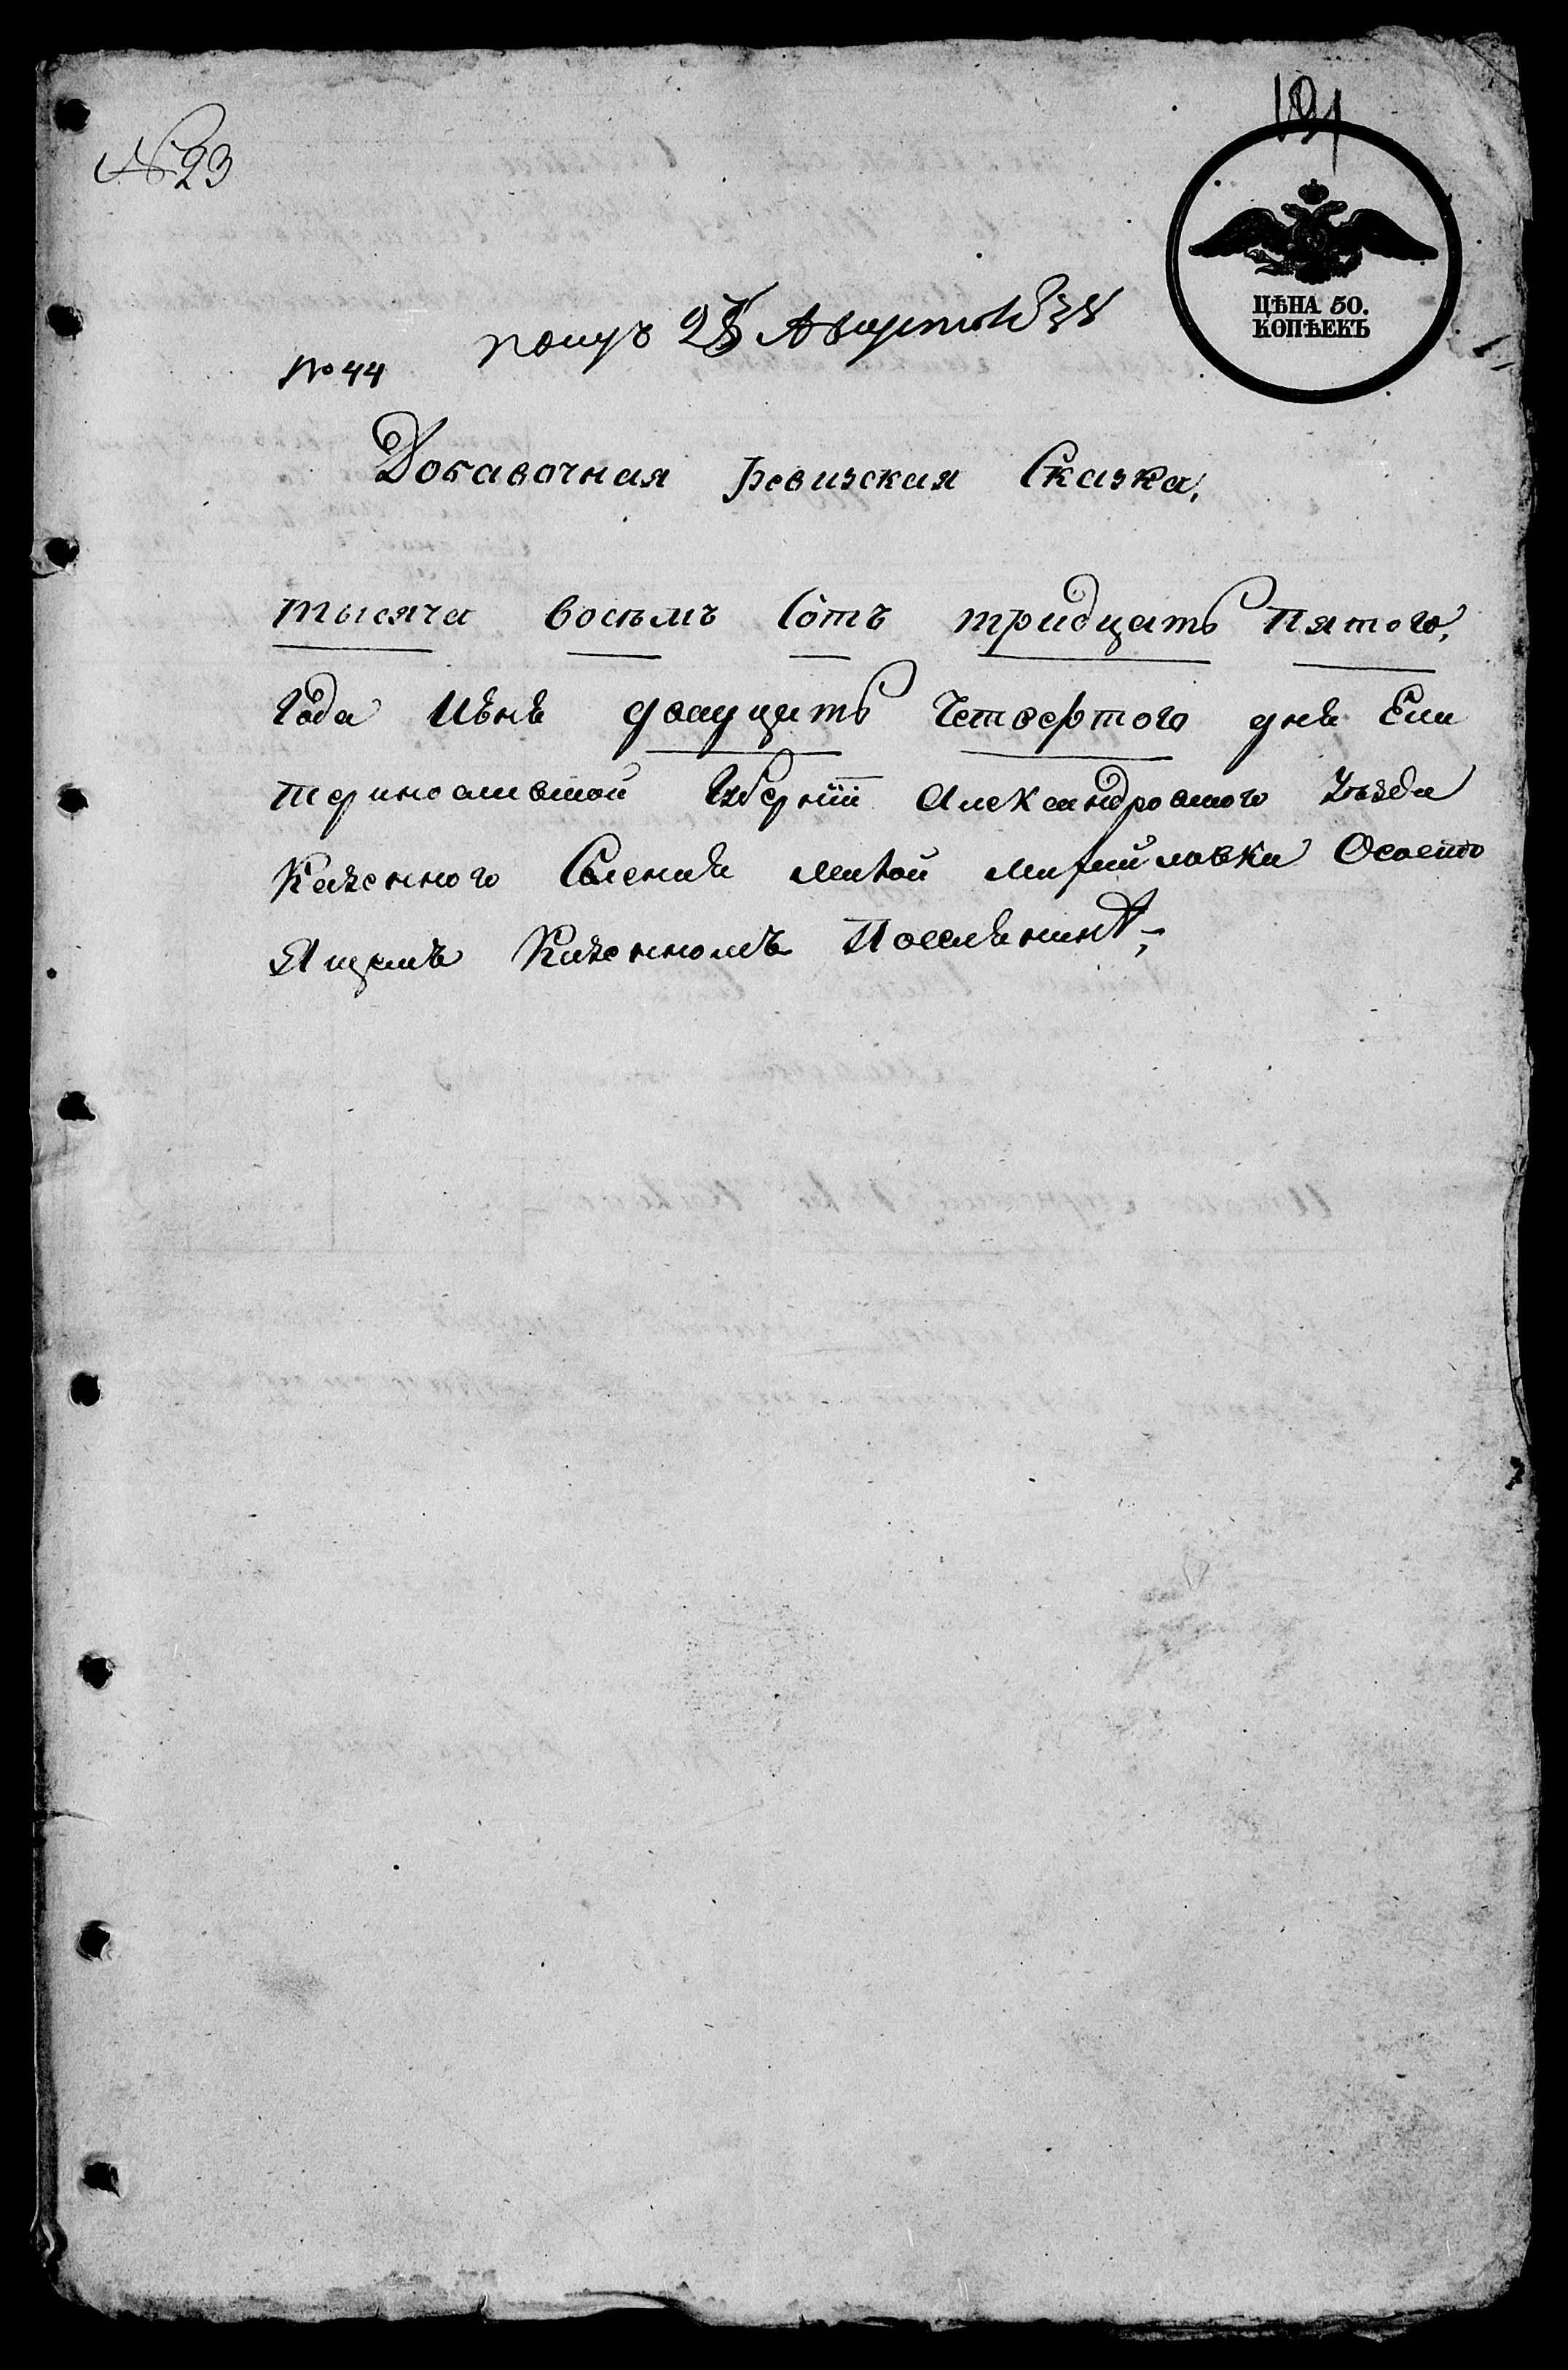 191
№ 23
ЦѢНА 50.
КОПѢЕКЪ
получ 25 Августа 1835
№ 44
Добавочная Ревизская Сказка,
тысяча восемъ Сотъ тридцать Пятого,
Года Июня двадцать Четвертого дня Ека
териносливской Губернии Александровского Уѣзда
Казенного Селения малой михайловки Ососто
Ящемъ Казенномъ Поселянине